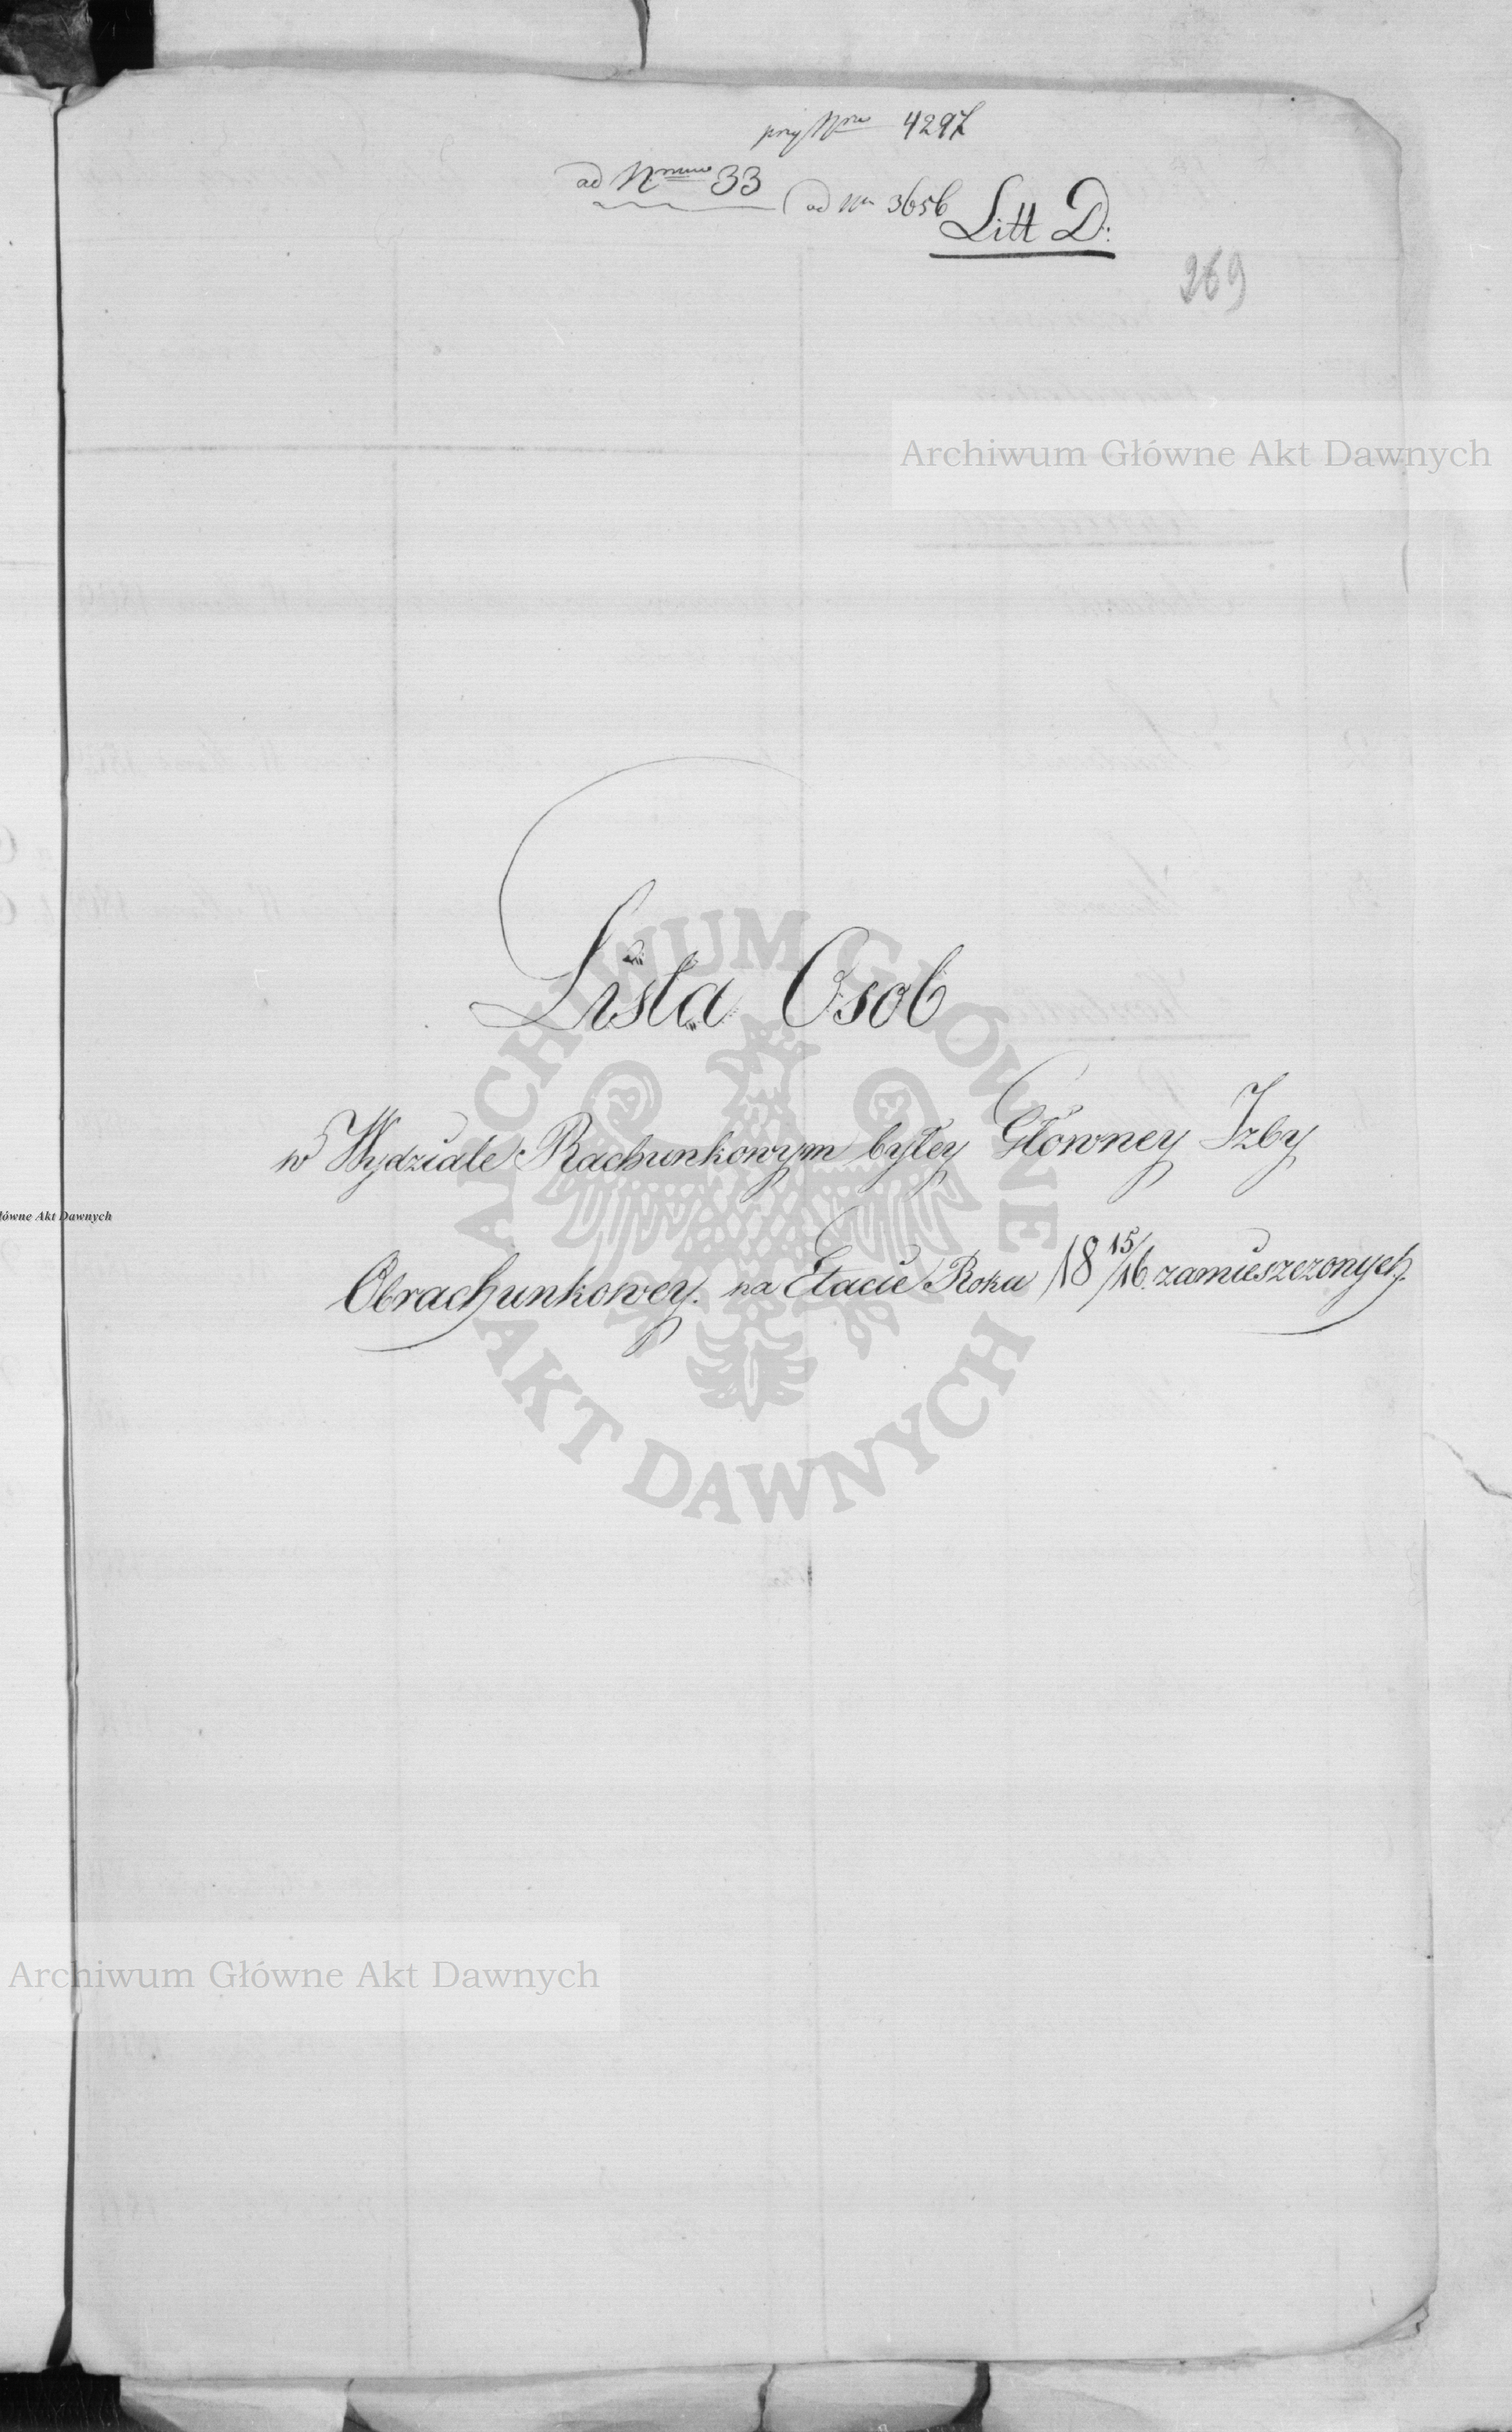 przy Nrze 4297
ad Nmum 33
ad Nr 3656
Litt D:
269
Archiwum Główne Akt Dawnych
Lista Osob
w Wydziale Rachunkowym byłey Główney Izby
Obrachunkowey. na Etacie Roku 18 15/16. zamieszczonych.
ARCHIWUM GŁÓWNE AKT DAWNYCH
łówne Akt Dawnych
Archiwum Główne Akt Dawnych